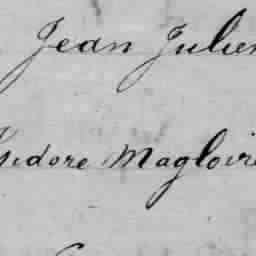 Jean Julien
Isidore Magloire